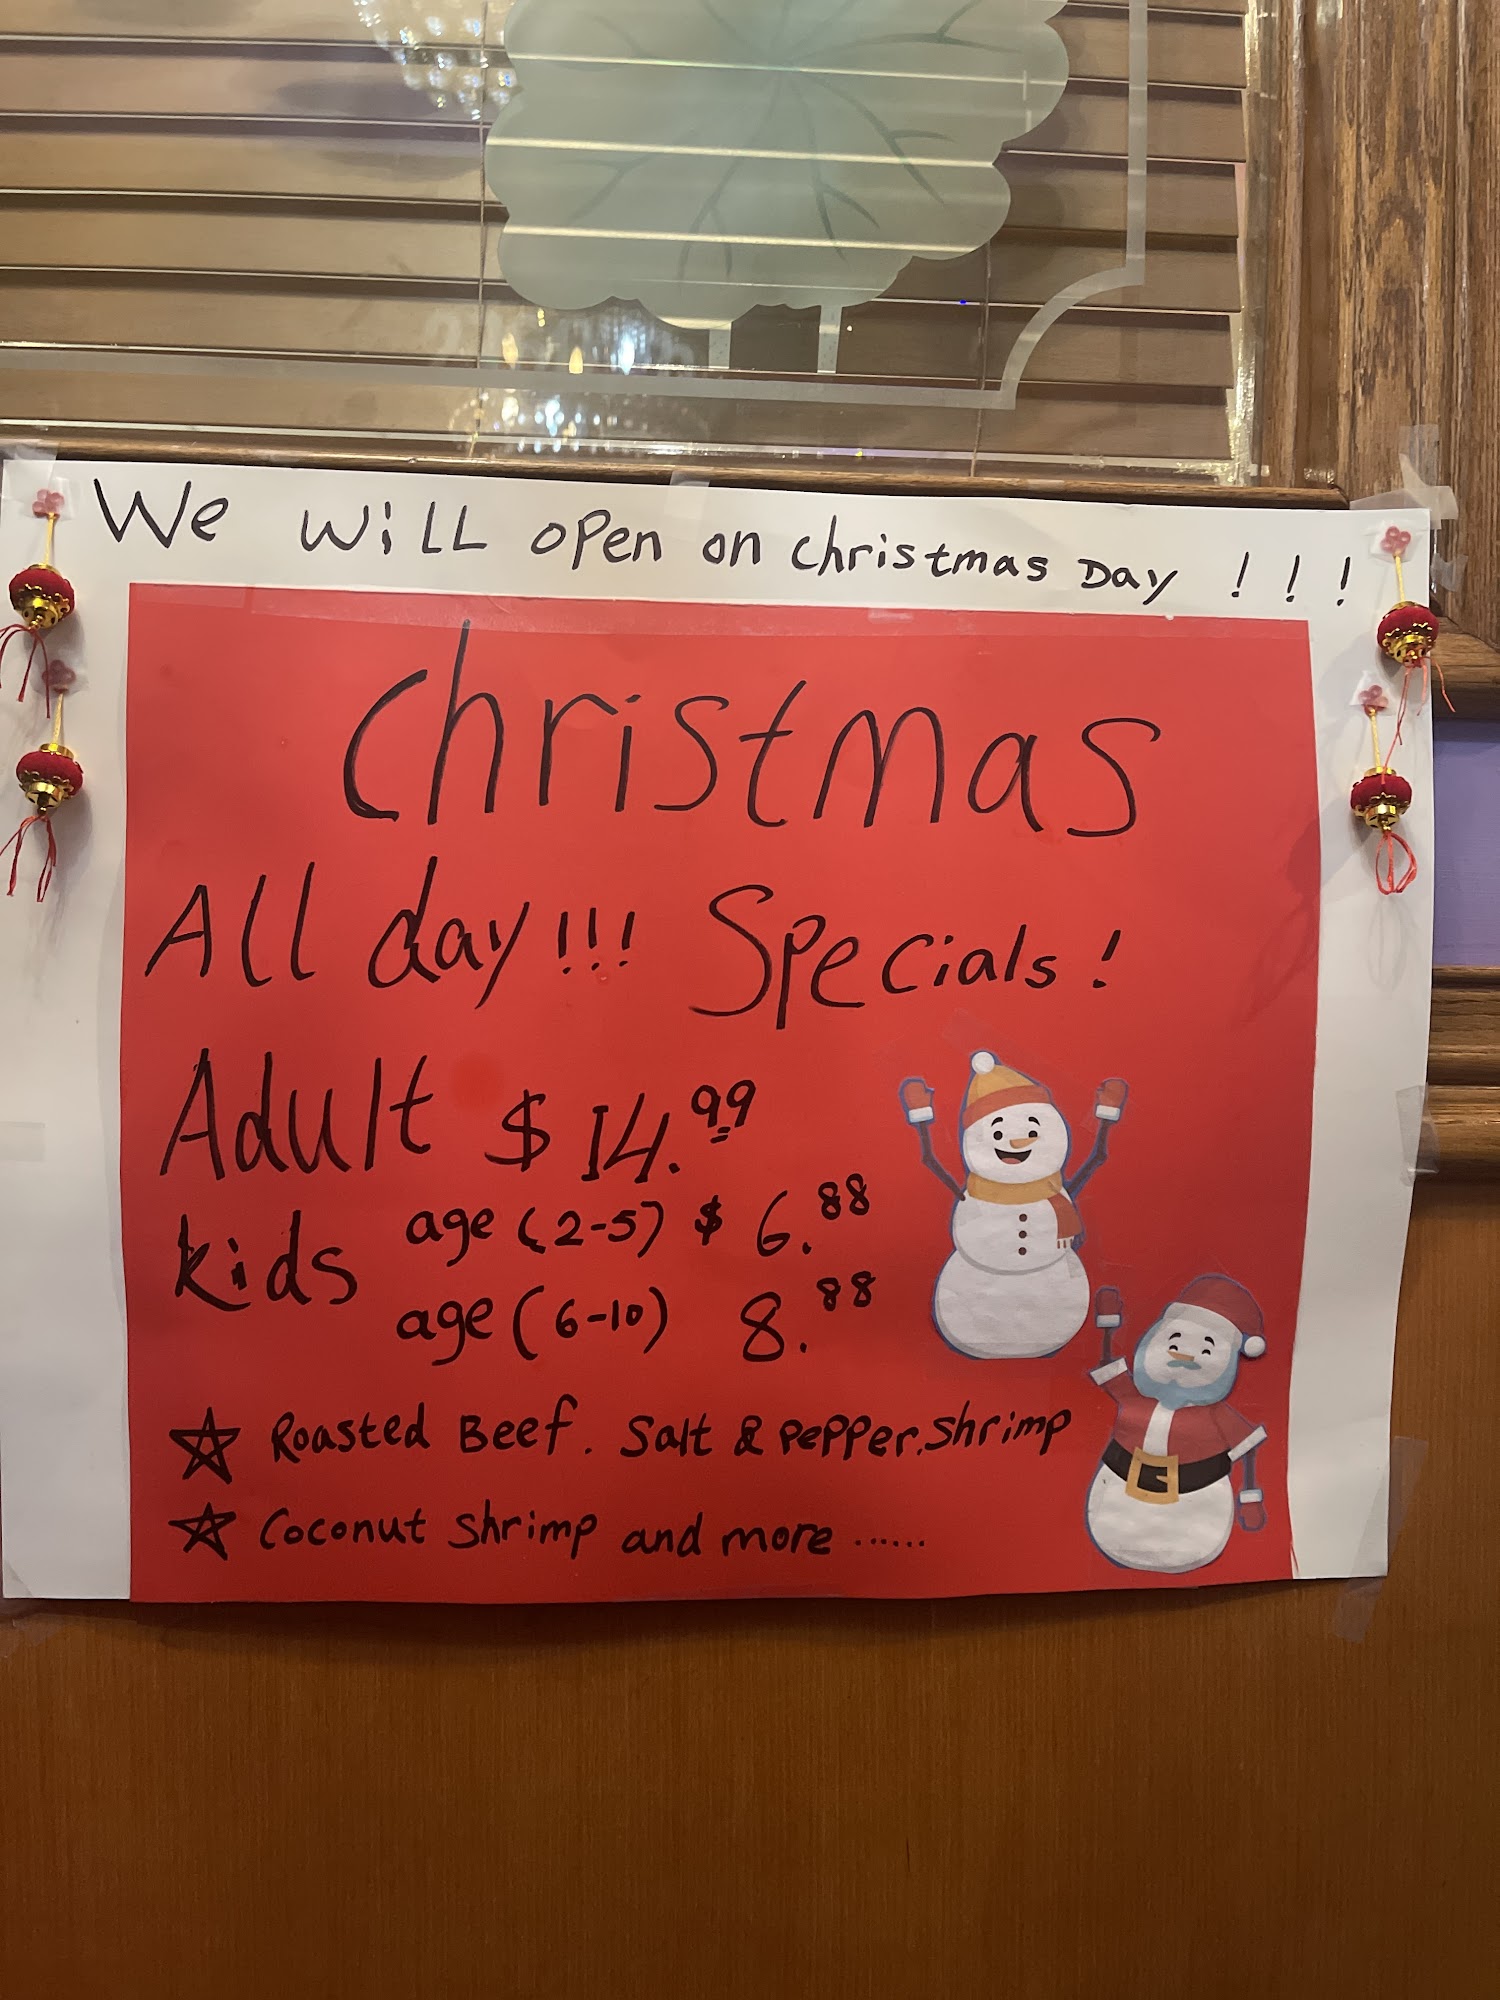 We Will open on christmas Day ! ! !
Christmas
All day!!! Specials!
Adult $14.99
kids age (2-5) $ 6.88
age (6-10) 8.88
☆ Roasted Beef. Salt & Pepper.shrimp
☆ Coconut shrimp and more ......